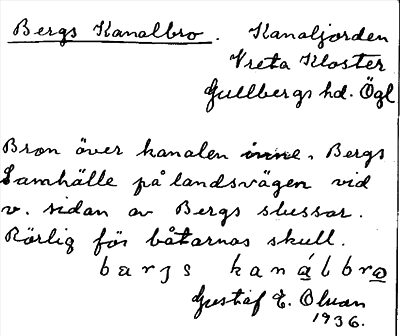 Bergs Kanalbro. Kanaljorden
Vreta Kloster
Gullbergs hd. Ögl
Bron över kanalen inne, Bergs
Samhälle på landsvägen vid
v. sidan av Bergs slussar.
Rörlig för båtarnas skull.
barjs kanálbro
Gustaf E. Olsson
1936.